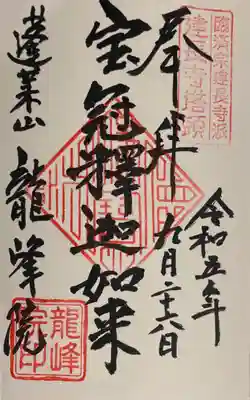 臨済宗建長寺派
建長寺塔頭
奉拝
令和五年
九月二十八日
宝冠釋迦如来
蓬莱山 龍峰院
龍峰
院印